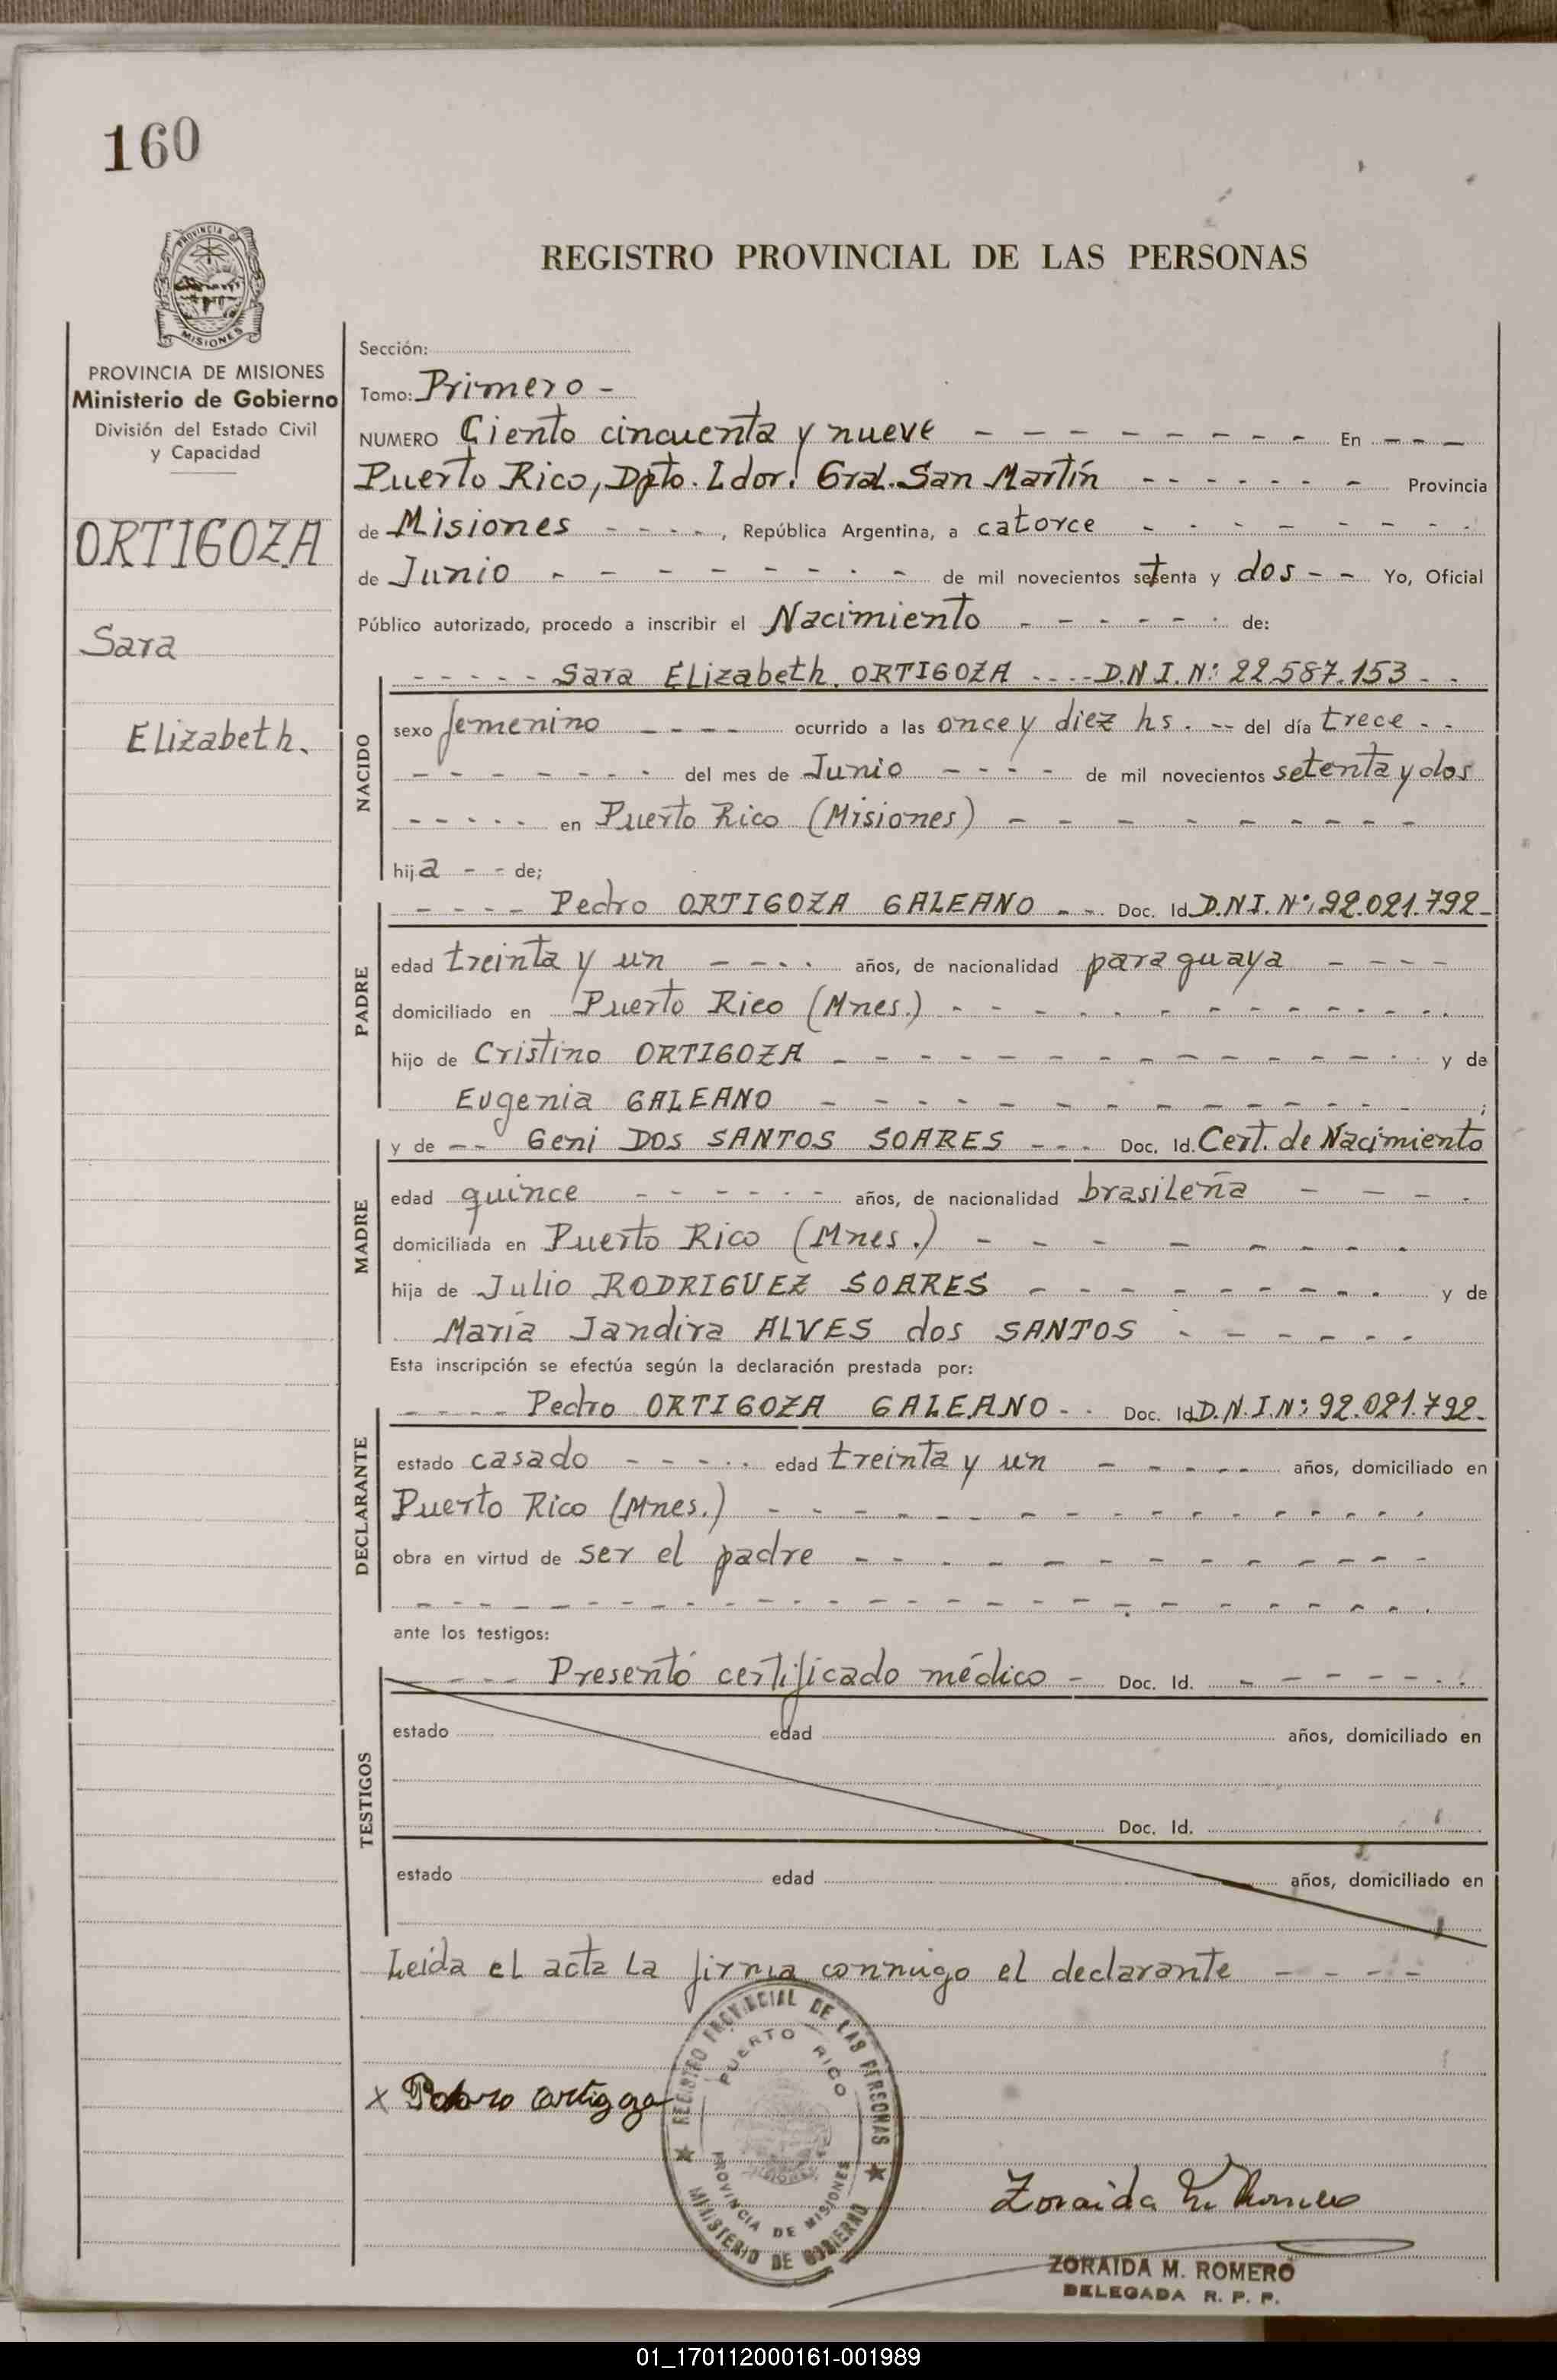 160
PROVINCIA DE MISIONES
Ministerio de Gobierno
División del Estado Civil
y Capacidad
ORTIGOZA
Sara
Elizabeth.
REGISTRO PROVINCIAL DE LAS PERSONAS
Sección:
Tomo: Primero -
NUMERO Ciento cincuenta y nueve - - - - - - - - - En - - -
Puerto Rico, Dpto. Ldor. Gral. San Martín - - - - - - Provincia
de Misiones - - - -, República Argentina, a catorce - - - - - - - -
de Junio - - - - - - - - - de mil novecientos setenta y dos - - Yo, Oficial
Público autorizado, procedo a inscribir el Nacimiento - - - - - - de:
NACIDO
- - - - - Sara Elizabeth ORTIGOZA - - - - D.N.I. N: 22.587.153 - -
sexo femenino - - - - ocurrido a las once y diez hs. - - del día trece - -
- - - - - - - del mes de Junio - - - - de mil novecientos setenta y dos
- - - - - en Puerto Rico (Misiones) - - - - - - - - -
hija - - de;
PADRE
- - - - Pedro ORTIGOZA GALEANO - - Doc. Id. D.N.I. N: 92.021.792 -
edad treinta y un - - - - años, de nacionalidad paraguaya - - - -
domiciliado en Puerto Rico (Mnes.) - - - - - - - - - - - -
hijo de Cristino ORTIGOZA - - - - - - - - - - - - - y de
Eugenia GALEANO - - - - - - - - - - - - - ;
MADRE
y de - - Geni DOS SANTOS SOARES - - - Doc. Id. Cert. de Nacimiento
edad quince - - - - - - años, de nacionalidad brasileña - - - -
domiciliada en Puerto Rico (Mnes.) - - - - - - - -
hija de Julio RODRIGUEZ SOARES - - - - - - - - - y de
María Jandira ALVES dos SANTOS - - - - - -
Esta inscripción se efectúa según la declaración prestada por:
DECLARANTE
- - - - Pedro ORTIGOZA GALEANO - - Doc. Id. D.N.I. N: 92.021.792 -
estado casado - - - - - edad treinta y un - - - - - años, domiciliado en
Puerto Rico (Mnes.) - - - - - - - - - - - - - - - -
obra en virtud de ser el padre - - - - - - - - - - - -
- - - - - - - - - - - - - - - - - - - - - - - - - -
ante los testigos:
TESTIGOS
- - - Presentó certificado médico - Doc. Id. - - - - - - -
estado edad años, domiciliado en
Doc. Id.
estado edad años, domiciliado en
Leída el acta la firma conmigo el declarante - - - -
x Pedro Ortigoza
REGISTRO PROVINCIAL DE LAS PERSONAS
PUERTO RICO
PROVINCIA DE MISIONES
MINISTERIO DE GOBIERNO
Zoraida M. Romero
ZORAIDA M. ROMERO
DELEGADA R. P. P.
01_170112000161-001989